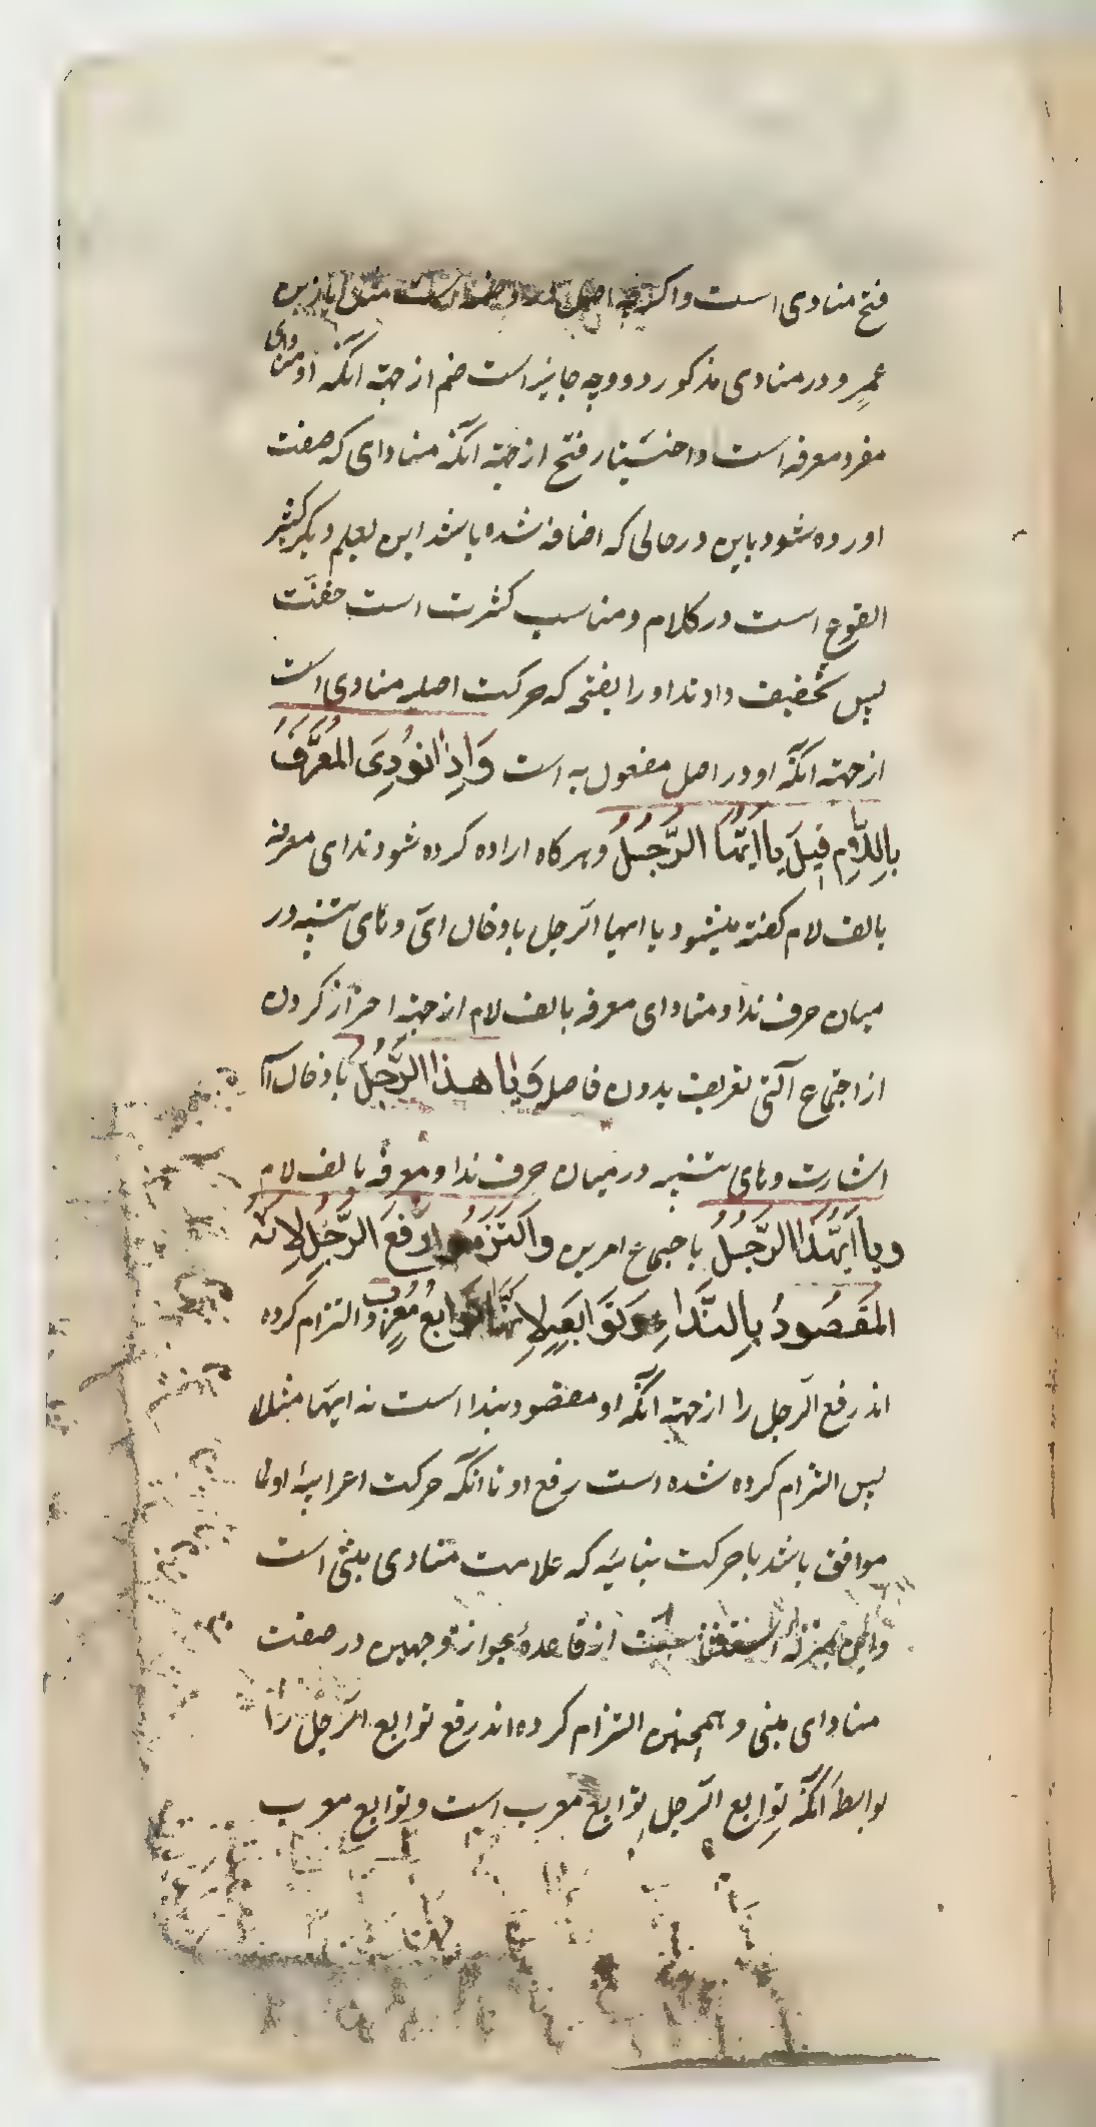 فتح منادی است واگرچه اصل در و ضم است مثل یا زید بن
عمرٍو و در منادی مذکور دو وجه جایز است ضم از جهة آنکه او منادای
مفرد معرفه است و اختیار فتح از جهة آنکه منادای که صفت
اورده شود باین در حالی که اضافه شده باشد ابن بعلم دیکر کثیر
الوقوع است در کلام و مناسب کثرت است خفت
پس تخفیف دادند او را بفتحه که حرکت اصلیه منادی است
از جهته آنکه او در اصل مفعول به است وَاِذا نُودِیَ المُعَرَّفُ
بِاللّامِ قیلَ یا اَیُّهَا الرَّجُلُ و هر کاه اراده کرده شود ندای معرفه
بالف لام کفته میشود یا ایها الرجل بادخال ایّ و های تنبیه در
میان حرف ندا و منادای معرفه بالف لام از جهته احتراز کردن
از اجتماع آلتی تعریف بدون فاصله وَیا هذا الرَّجُلُ بادخال
اشارت و های تنبیه در میان حرف ندا و معرفه بالف لام
ویا اَیُّهَذَا الرَّجُلُ باجتماع امرین وَالتَزَمُوا رَفعَ الرَّجُلِ لِاَنَّهُ
المَقصُودُ بِالنِّداءِ وَتَوابِعِهِ لِاَنَّها تَوابِعُ مُعرَبٍ و التزام کرده
اند رفع الرجل را از جهته آنکه او مقصود بندا است نه ایها مثلا
پس التزام کرده شده است رفع او تا آنکه حرکت اعرابیهٔ او
موافق باشد با حرکت بنائیه که علامت منادی مبنی است
واین بمنزلهٔ استثنا است از قاعدهٔ جواز وجهین در صفت
منادای مبنی و همچنین التزام کرده اند رفع توابع الرجل را
بواسطه آنکه توابع الرجل توابع معرب است و توابع معرب